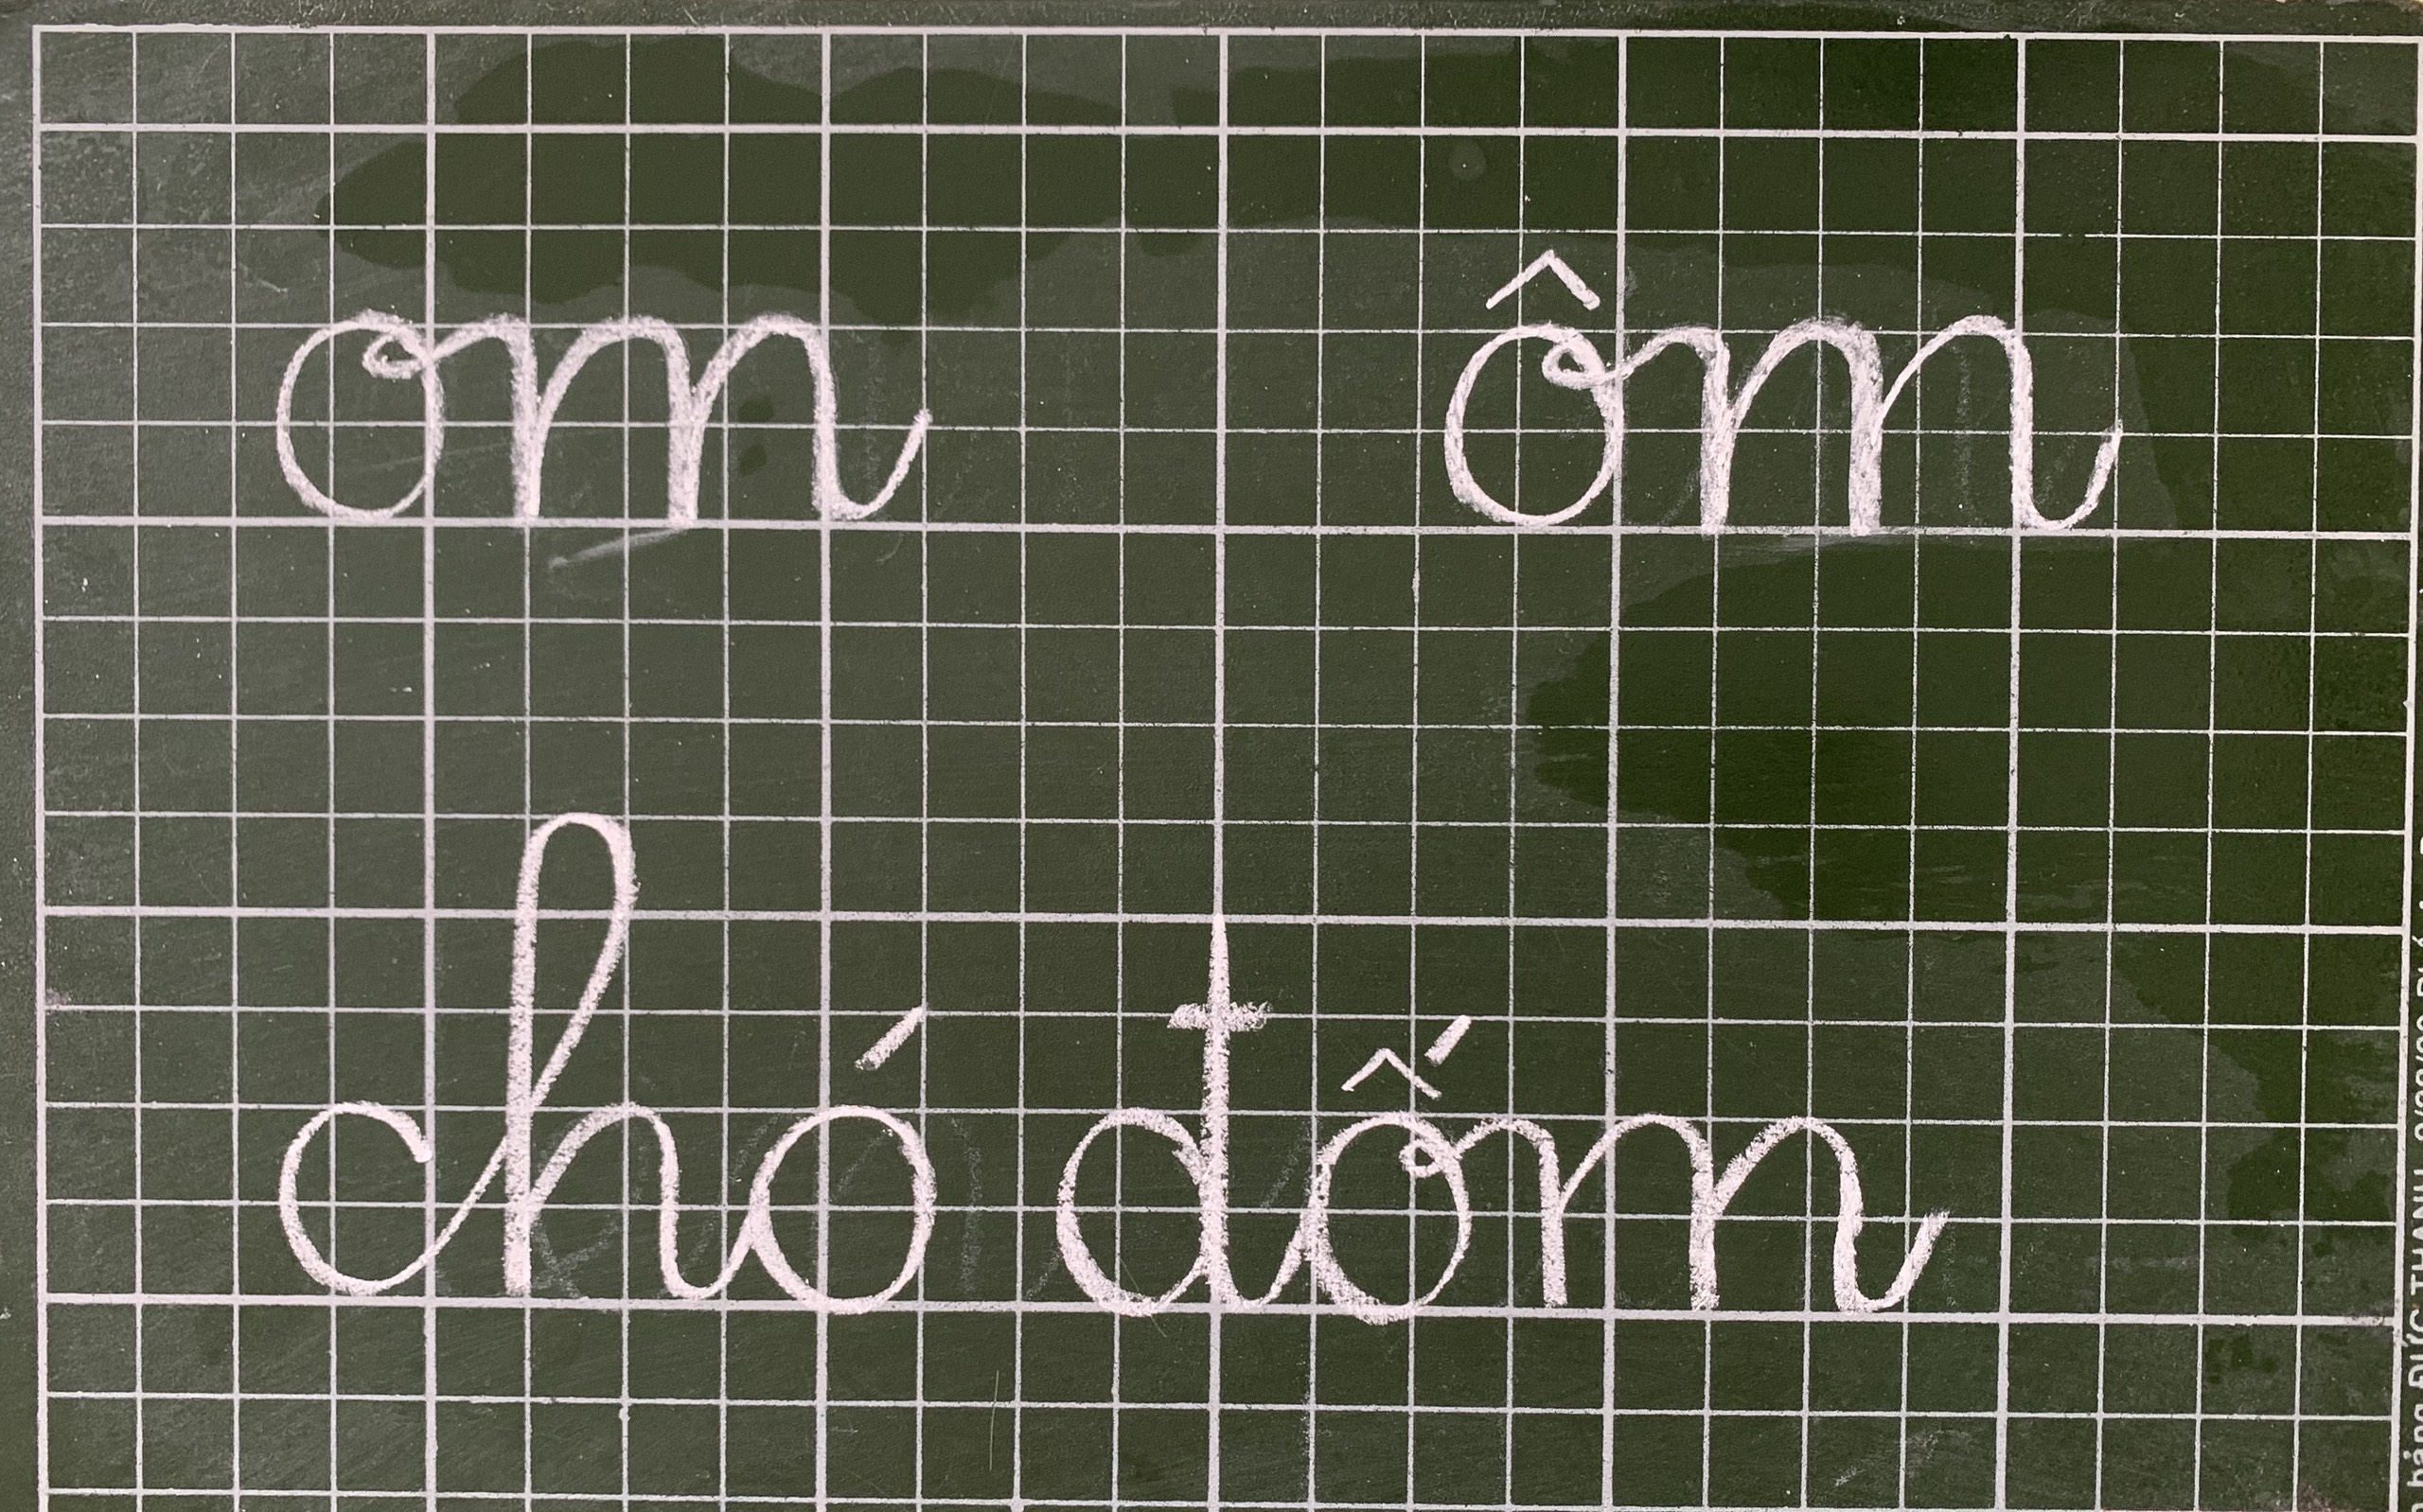 om ôm
chó đốm
bảng ĐỨC THANH